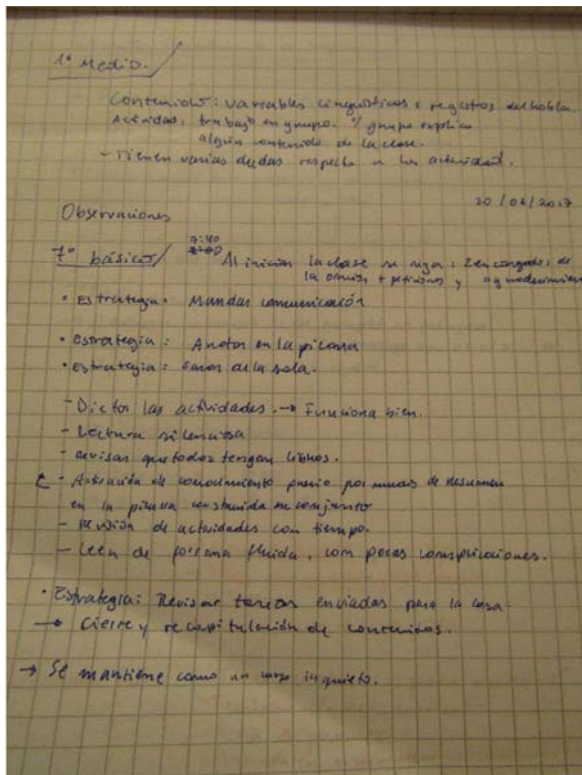 1° Medio.
Contenidos: variables lingüísticas y registros del habla.
Actividad: trabajo en grupo. % grupo explica
algún contenido de la clase.
- Tienen varias dudas respecto a la actividad.
20/06/2017
Observaciones
7° básico 7:40
Al iniciar la clase se reza: 2 encargados de
la oración + peticiones y agradecimientos
• Estrategia: Mandar comunicación
• Estrategia: Anotar en la pizarra
• Estrategia: Sacar de la sala.
- Dictar las actividades. → Funciona bien.
- Lectura silenciosa
- Revisar que todos tengan libros.
- Activación de conocimiento previo por medio de resumen
en la pizarra construida en conjunto
- Revisión de actividades con tiempo.
- Leen de forma fluida, con pocas complicaciones.
• Estrategia: Revisar tareas enviadas para la casa.
→ Cierre y recapitulación de contenidos.
→ Se mantiene como un curso inquieto.